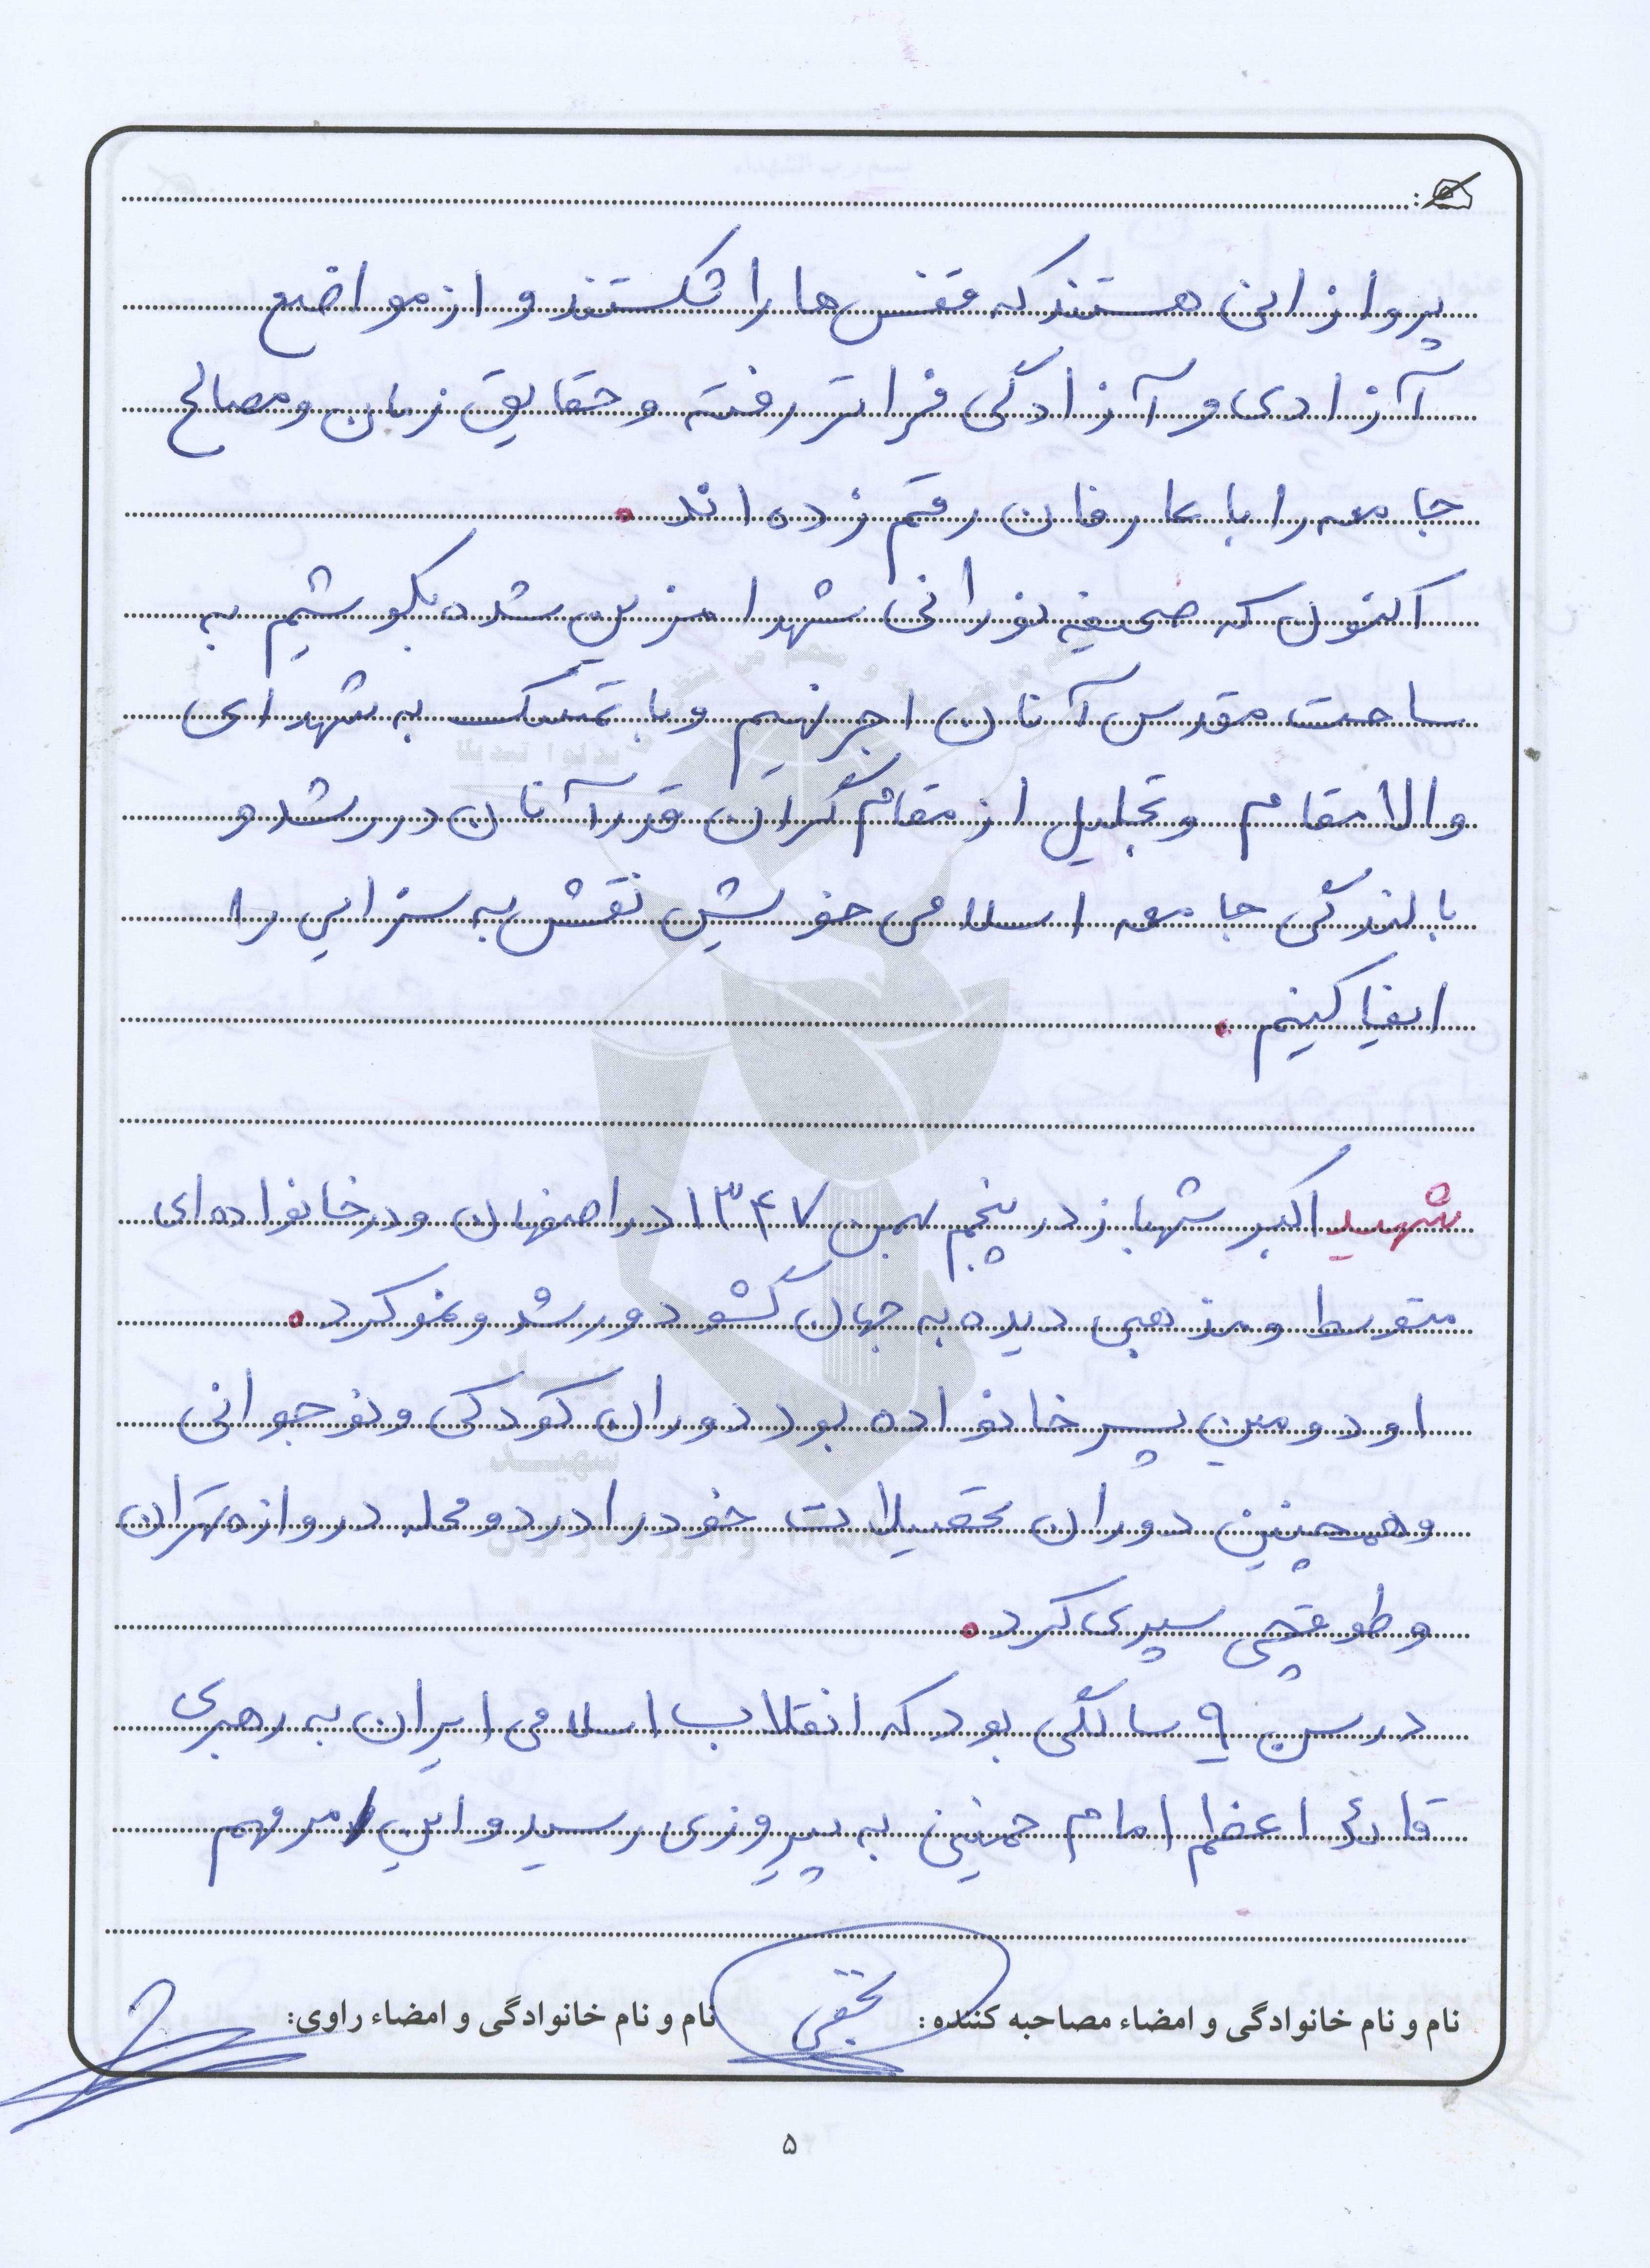 پروازانی هستند که قفس ها را شکستند و از مواضع
آزادی و آزادگی فراتر رفته و حقایق زمان و مصالح
جامعه را با عارفان رقم زده اند.
اکنون که صحیفه نورانی شهدا مزین شده بکوشیم به
ساحت مقدس آنان اجر نهیم و با تمسک به شهدای
والامقام و تجلیل از مقام گران قدر آنان در رشد و
بالندگی جامعه اسلامی خویش نقش به سزایی را
ایفا کنیم.
شهید اکبر شهباز در پنجم بهمن ۱۳۴۷ در اصفهان و در خانواده ای
متوسط و مذهبی دیده به جهان گشود و رشد و نمو کرد.
او دومین پسر خانواده بود دوران کودکی و نوجوانی
و همچنین دوران تحصیلات خود را در دو محله دروازه تهران
و طوقچی سپری کرد.
در سن ۹ سالگی بود که انقلاب اسلامی ایران به رهبری
قائد اعظم امام خمینی به پیروزی رسید و این امر مهم
نام و نام خانوادگی و امضاء مصاحبه کننده: نام و نام خانوادگی و امضاء راوی:
۵